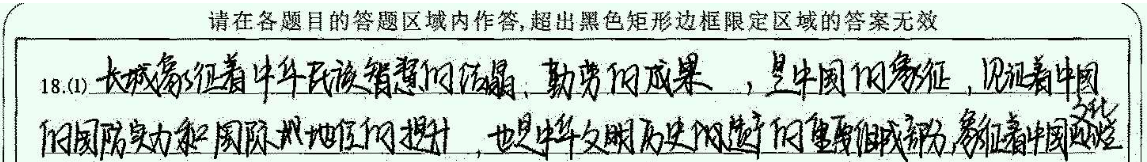 请在各题目的答题区域内作答,超出黑色矩形边框限定区域的答案无效
18.(1) 长城象征着中华民族智慧的结晶、勤劳的成果,是中国的象征,见证着中国
的国防实力和国际地位的提升,也是中华文明历史的遗产的重要组成部分,象征着中国文化